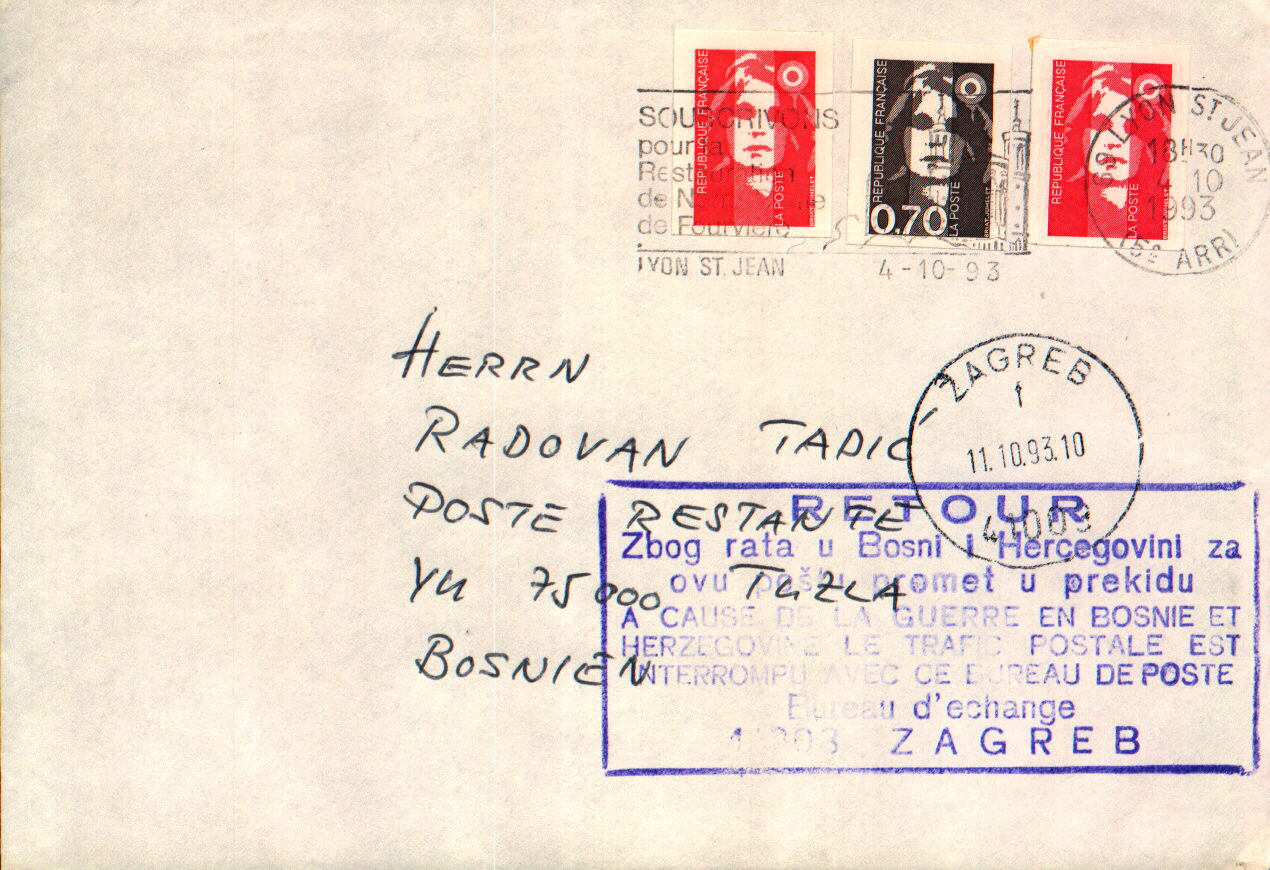 REPUBLIQUE FRANÇAISE
LA POSTE
REPUBLIQUE FRANÇAISE
0.70
LA POSTE
REPUBLIQUE FRANÇAISE
LA POSTE
SOUSCRIVONS
pour la
Restauration
de Notre Dame
de Fourvière
LYON ST. JEAN
4-10-93
69 LYON ST JEAN
18H30
4 10
1993
(5e ARR)
HERRN
RADOVAN TADIC
POSTE RESTANTE
YU 75000 TUZLA
BOSNIEN
ZAGREB
11.10.93.10
41009
RETOUR
Zbog rata u Bosni i Hercegovini za
ovu poštu promet u prekidu
A CAUSE DE LA GUERRE EN BOSNIE ET
HERZEGOVINE LE TRAFIC POSTALE EST
INTERROMPU AVEC CE BUREAU DE POSTE
Bureau d'echange
ZAGREB